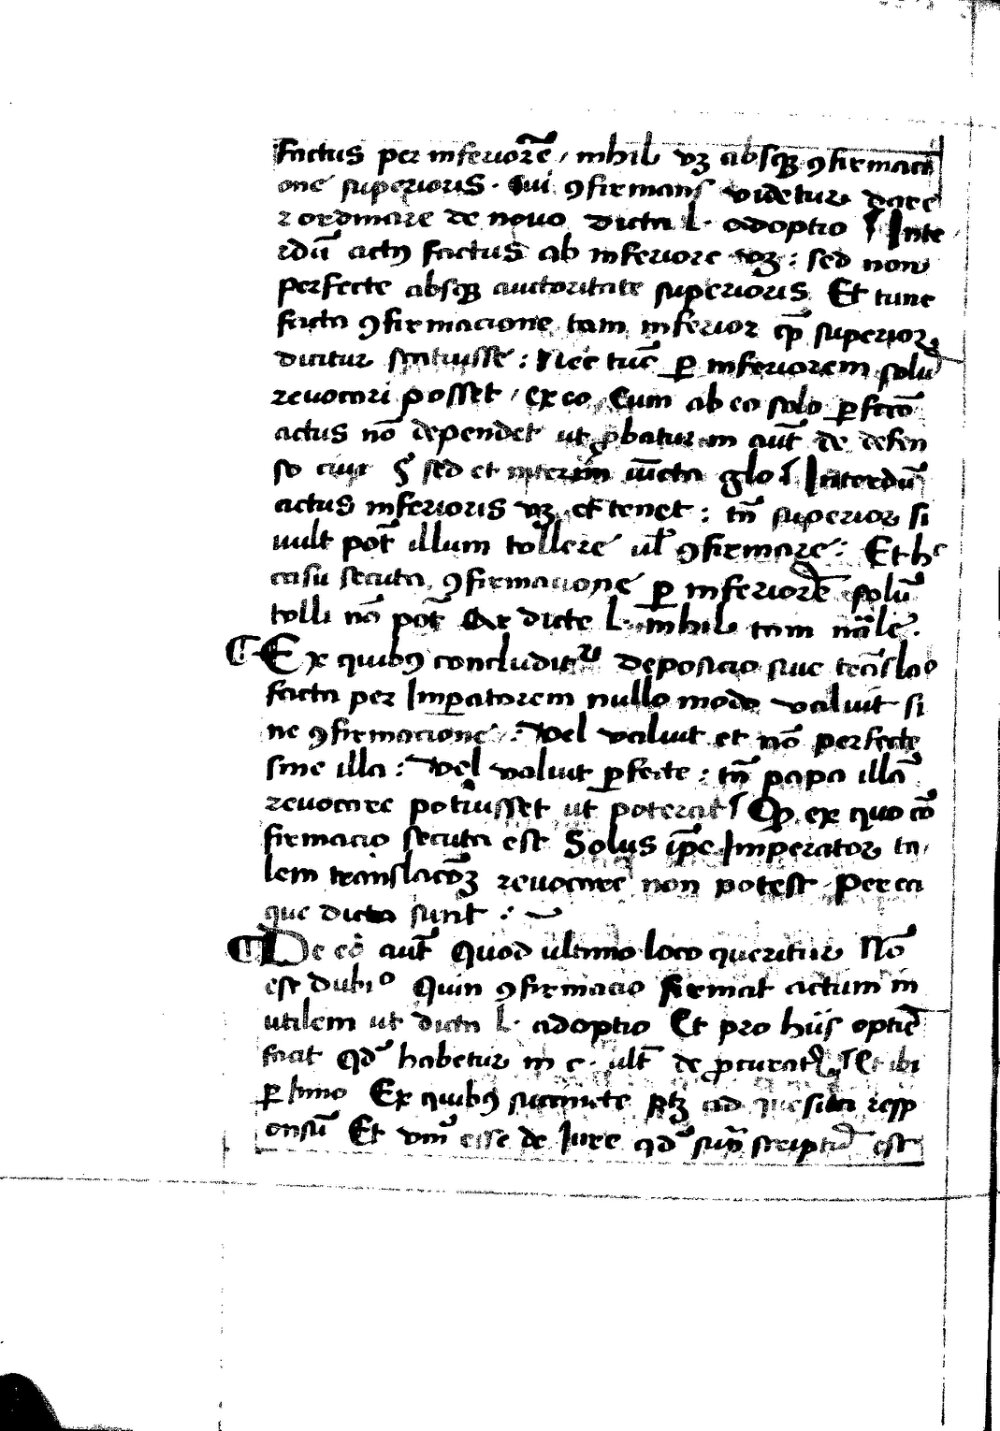 factus per inferiorē / nihil vꝫ absqꝫ ꝯfirmaci
one superioris · Cui ꝯfirmans videtur dare
⁊ ordinare de novo dicta l· adoptio ¶ Inte
rdū actꝰ factus ab inferiore vꝫ : sed non
perfecte absqꝫ auctoritate superioris Et tunc
facta ꝯfirmacione tam inferior qͣ superior
dicitur statuisse : Nec tūc ꝑ inferiorem solū
revocari posset / ex eo / Cum ab eo solo ꝑfecto
actus nō dependet ut ꝓbatur in aut̄ de defen
so ciui § sed et interim iūcta glo¶ Interdū
actus inferioris vꝫ et tenet : tn̄ superior si
uult pot̄ illum tollere ul̄ ꝯfirmare : Et hᶜ
casu secuta ꝯfirmacione ꝑ inferiorē solū
tolli nō pot̄ Ar dicte l· nihil tam nāle·
¶ Ex quibꝰ concluditᷣ deposicio siue trāslaᵒ
facta per Imꝑatorem nullo modo valuit si
ne ꝯfirmacione : Vel valuit et nō perfecte
sine illa : Vel valuit ꝑfecte : tn̄ papa illā
revocare potuisset ut poterat ¶ Qᷓ ex quo cō
firmacio secuta est Solus ip̄e Imperator ta
lem translacōꝫ revocare non potest · Per ea
que dicta sunt :
¶ De eo aut̄ Quod ultimo loco queritur Nō
est dubiᵒ Quin ꝯfirmacio firmat actum in
utilem ut dicta l· adoptio Et pro hiis optīe
facit qd̄ habetur in c· ult̄ de ꝓcurat ¶ Et ibi
ꝑ Inno Ex quibꝰ succincte ptꝫ ad quesita resp
onsū Et vm̄ esse de Iure qd̄ suꝑ scriptū est